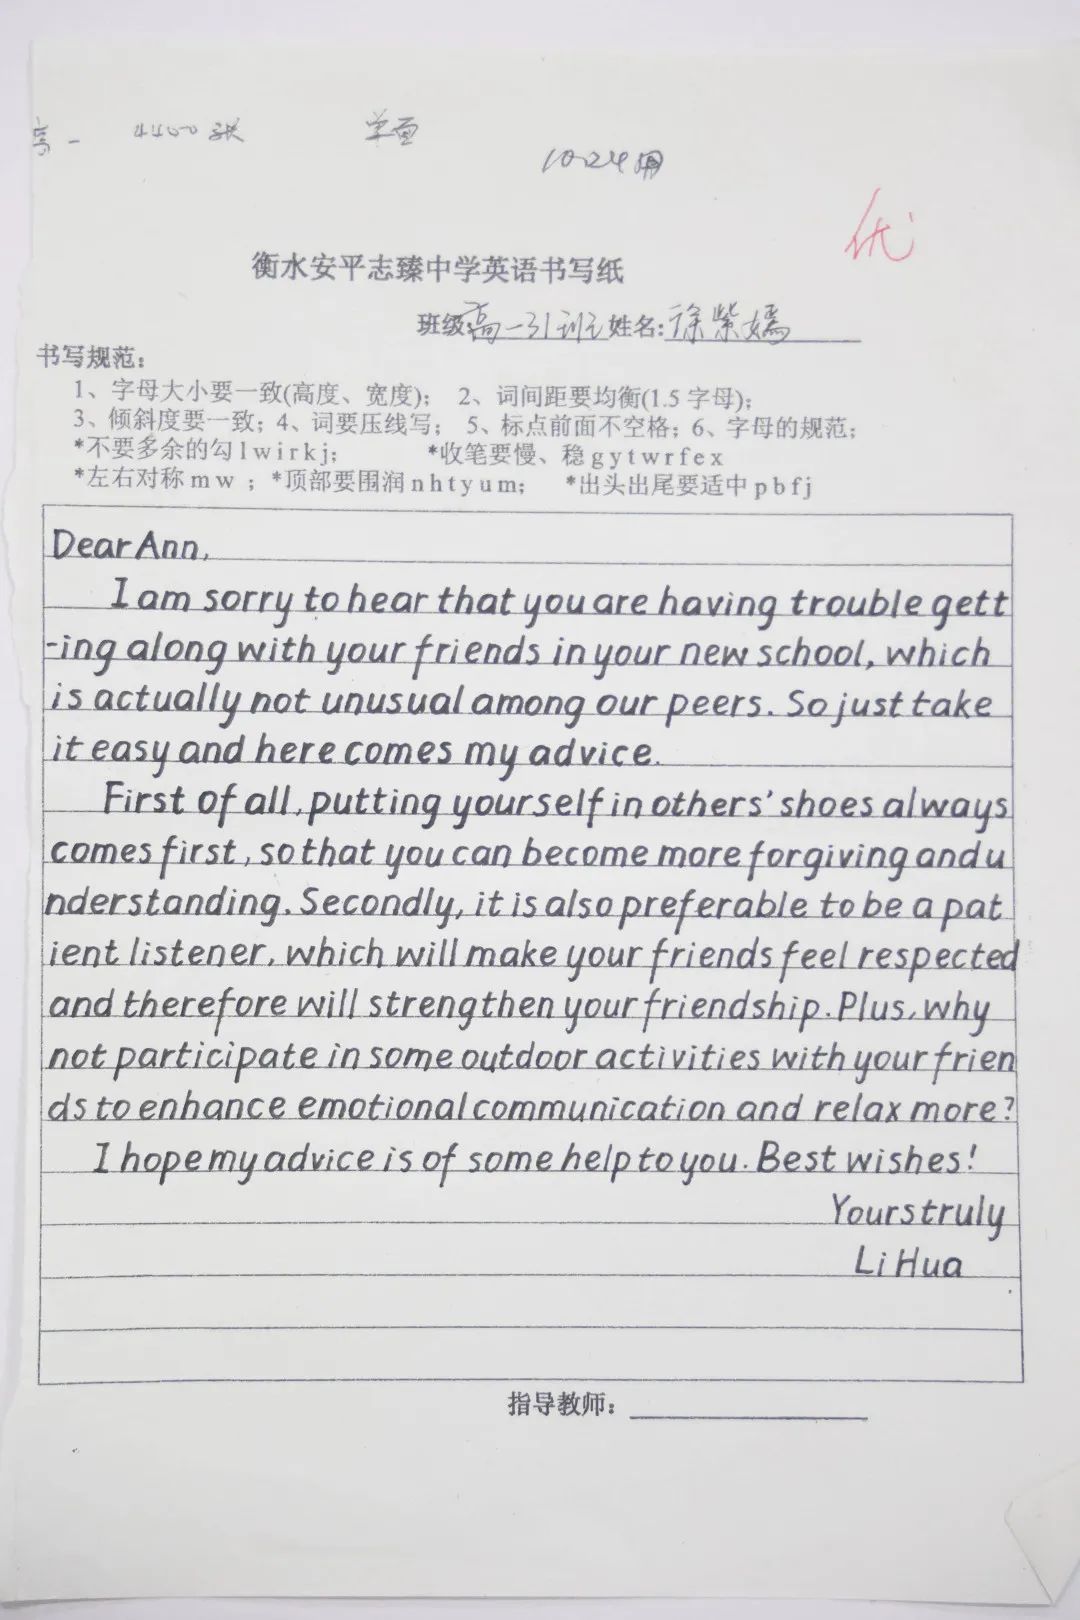 高一 4400张 单面
1024用
优
衡水安平志臻中学英语书写纸
班级:高一31班 姓名:徐紫嫣
书写规范:
1、字母大小要一致(高度、宽度); 2、词间距要均衡(1.5 字母);
3、倾斜度要一致; 4、词要压线写; 5、标点前面不空格; 6、字母的规范;
*不要多余的勾 l w i r k j; *收笔要慢、稳 g y t w r f e x
*左右对称 m w ; *顶部要围润 n h t y u m; *出头出尾要适中 p b f j
Dear Ann,
I am sorry to hear that you are having trouble gett
-ing along with your friends in your new school, which
is actually not unusual among our peers. So just take
it easy and here comes my advice.
First of all, putting yourself in others' shoes always
comes first, so that you can become more forgiving and u
nderstanding. Secondly, it is also preferable to be a pat
ient listener, which will make your friends feel respected
and therefore will strengthen your friendship. Plus, why
not participate in some outdoor activities with your frien
ds to enhance emotional communication and relax more?
I hope my advice is of some help to you. Best wishes!
Yours truly
Li Hua
指导教师: